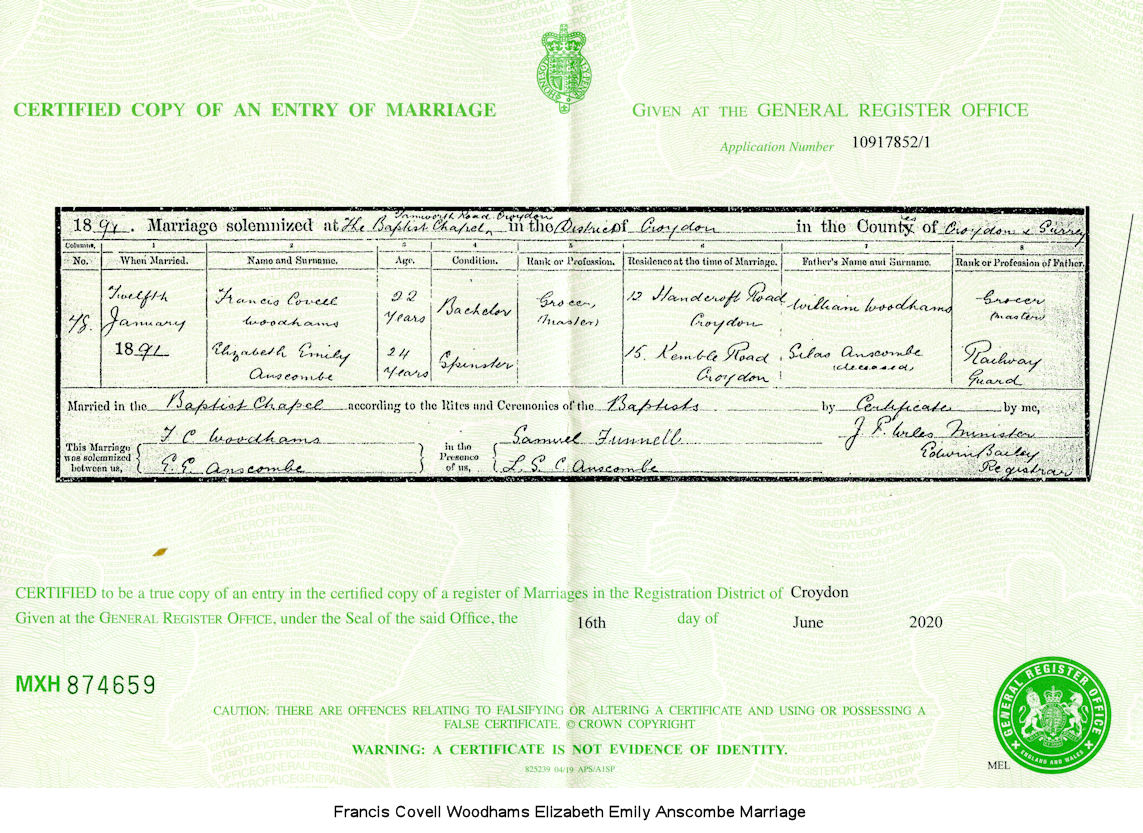 CERTIFIED COPY OF AN ENTRY OF MARRIAGE
GIVEN AT THE GENERAL REGISTER OFFICE
Application Number 10917852/1
Tamworth Road Croydon
1891. Marriage solemnized at The Baptist Chapel, in the District of Croydon in the Counties of Croydon & Surrey
Columns. 1 2 3 4 5 6 7 8
No. When Married. Name and Surname. Age. Condition. Rank or Profession. Residence at the time of Marriage. Father's Name and Surname. Rank or Profession of Father.
48. Twelfth January 1891
Francis Covell Woodhams
22 Years
Bachelor
Grocer, (Master)
12 Handcroft Road Croydon
William Woodhams
Grocer (Master)
Elizabeth Emily Anscombe
24 Years
Spinster
15. Kemble Road Croydon
Silas Anscombe (deceased)
Railway Guard
Married in the Baptist Chapel according to the Rites and Ceremonies of the Baptists by Certificate by me,
This Marriage was solemnized between us,
F C Woodhams
E. E. Anscombe
in the Presence of us,
Samuel Funnell
L. S. C. Anscombe
Minister
Edwin Bailey
Registrar
CERTIFIED to be a true copy of an entry in the certified copy of a register of Marriages in the Registration District of Croydon
Given at the GENERAL REGISTER OFFICE, under the Seal of the said Office, the 16th day of June 2020
MXH 874659
CAUTION: THERE ARE OFFENCES RELATING TO FALSIFYING OR ALTERING A CERTIFICATE AND USING OR POSSESSING A
FALSE CERTIFICATE. © CROWN COPYRIGHT
WARNING: A CERTIFICATE IS NOT EVIDENCE OF IDENTITY.
825239 04/19 APS/A1SP
MEL
GENERAL REGISTER OFFICE
ENGLAND AND WALES
Francis Covell Woodhams Elizabeth Emily Anscombe Marriage